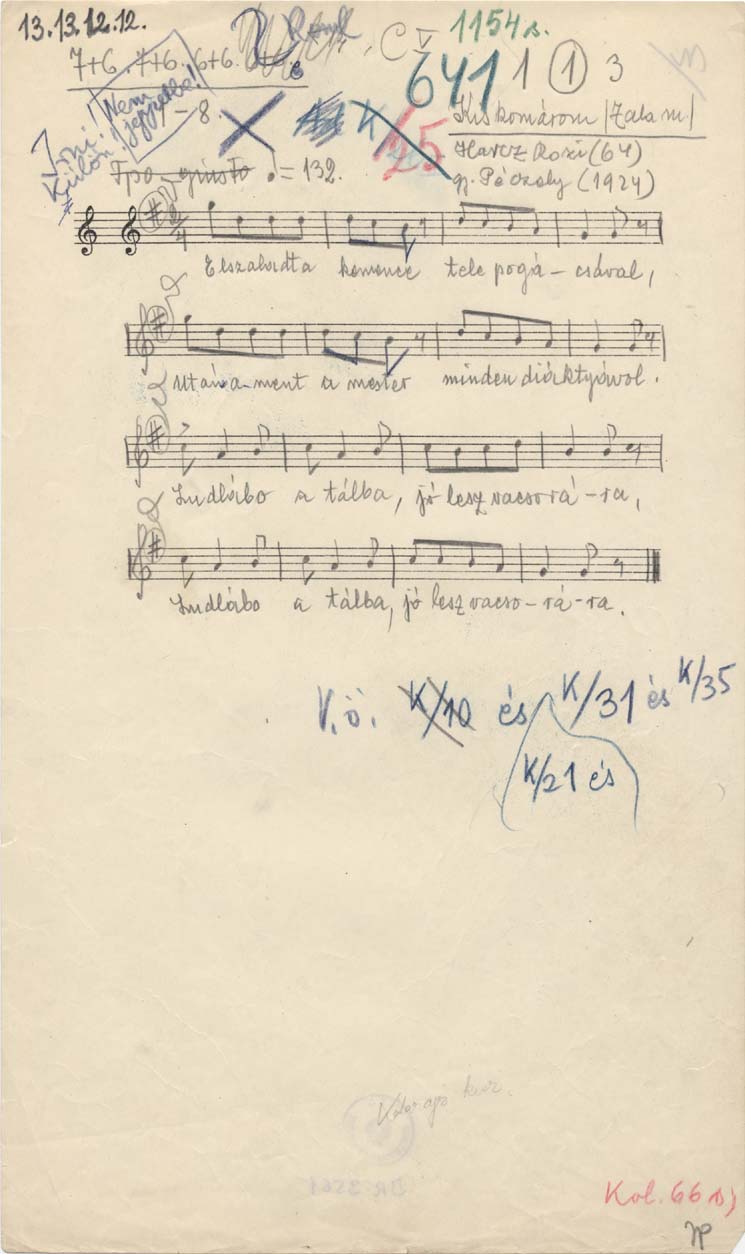 13.13.12.12.
7+6. 7+6. 6+6.
C V 1154 b.
641 1 1 3
Nem
jegyzetbe!
Külön!
1-8.
K
25
Kiskomárom /Zala m/
Harcz Rozi (64)
gy. Péczely (1924)
Tpo giusto = 132.
2/4
Elszaladt a kemence tele pogá-csával,
Utána ment a mester minden diáktyával.
Ludlába a tálba, jó lesz vacsorá-ra,
Ludlába a tálba, jó lesz vacso-rá-ra.
V.ö. K/10 és K/31 és K/35
K/21 és
Kol. 66 b)